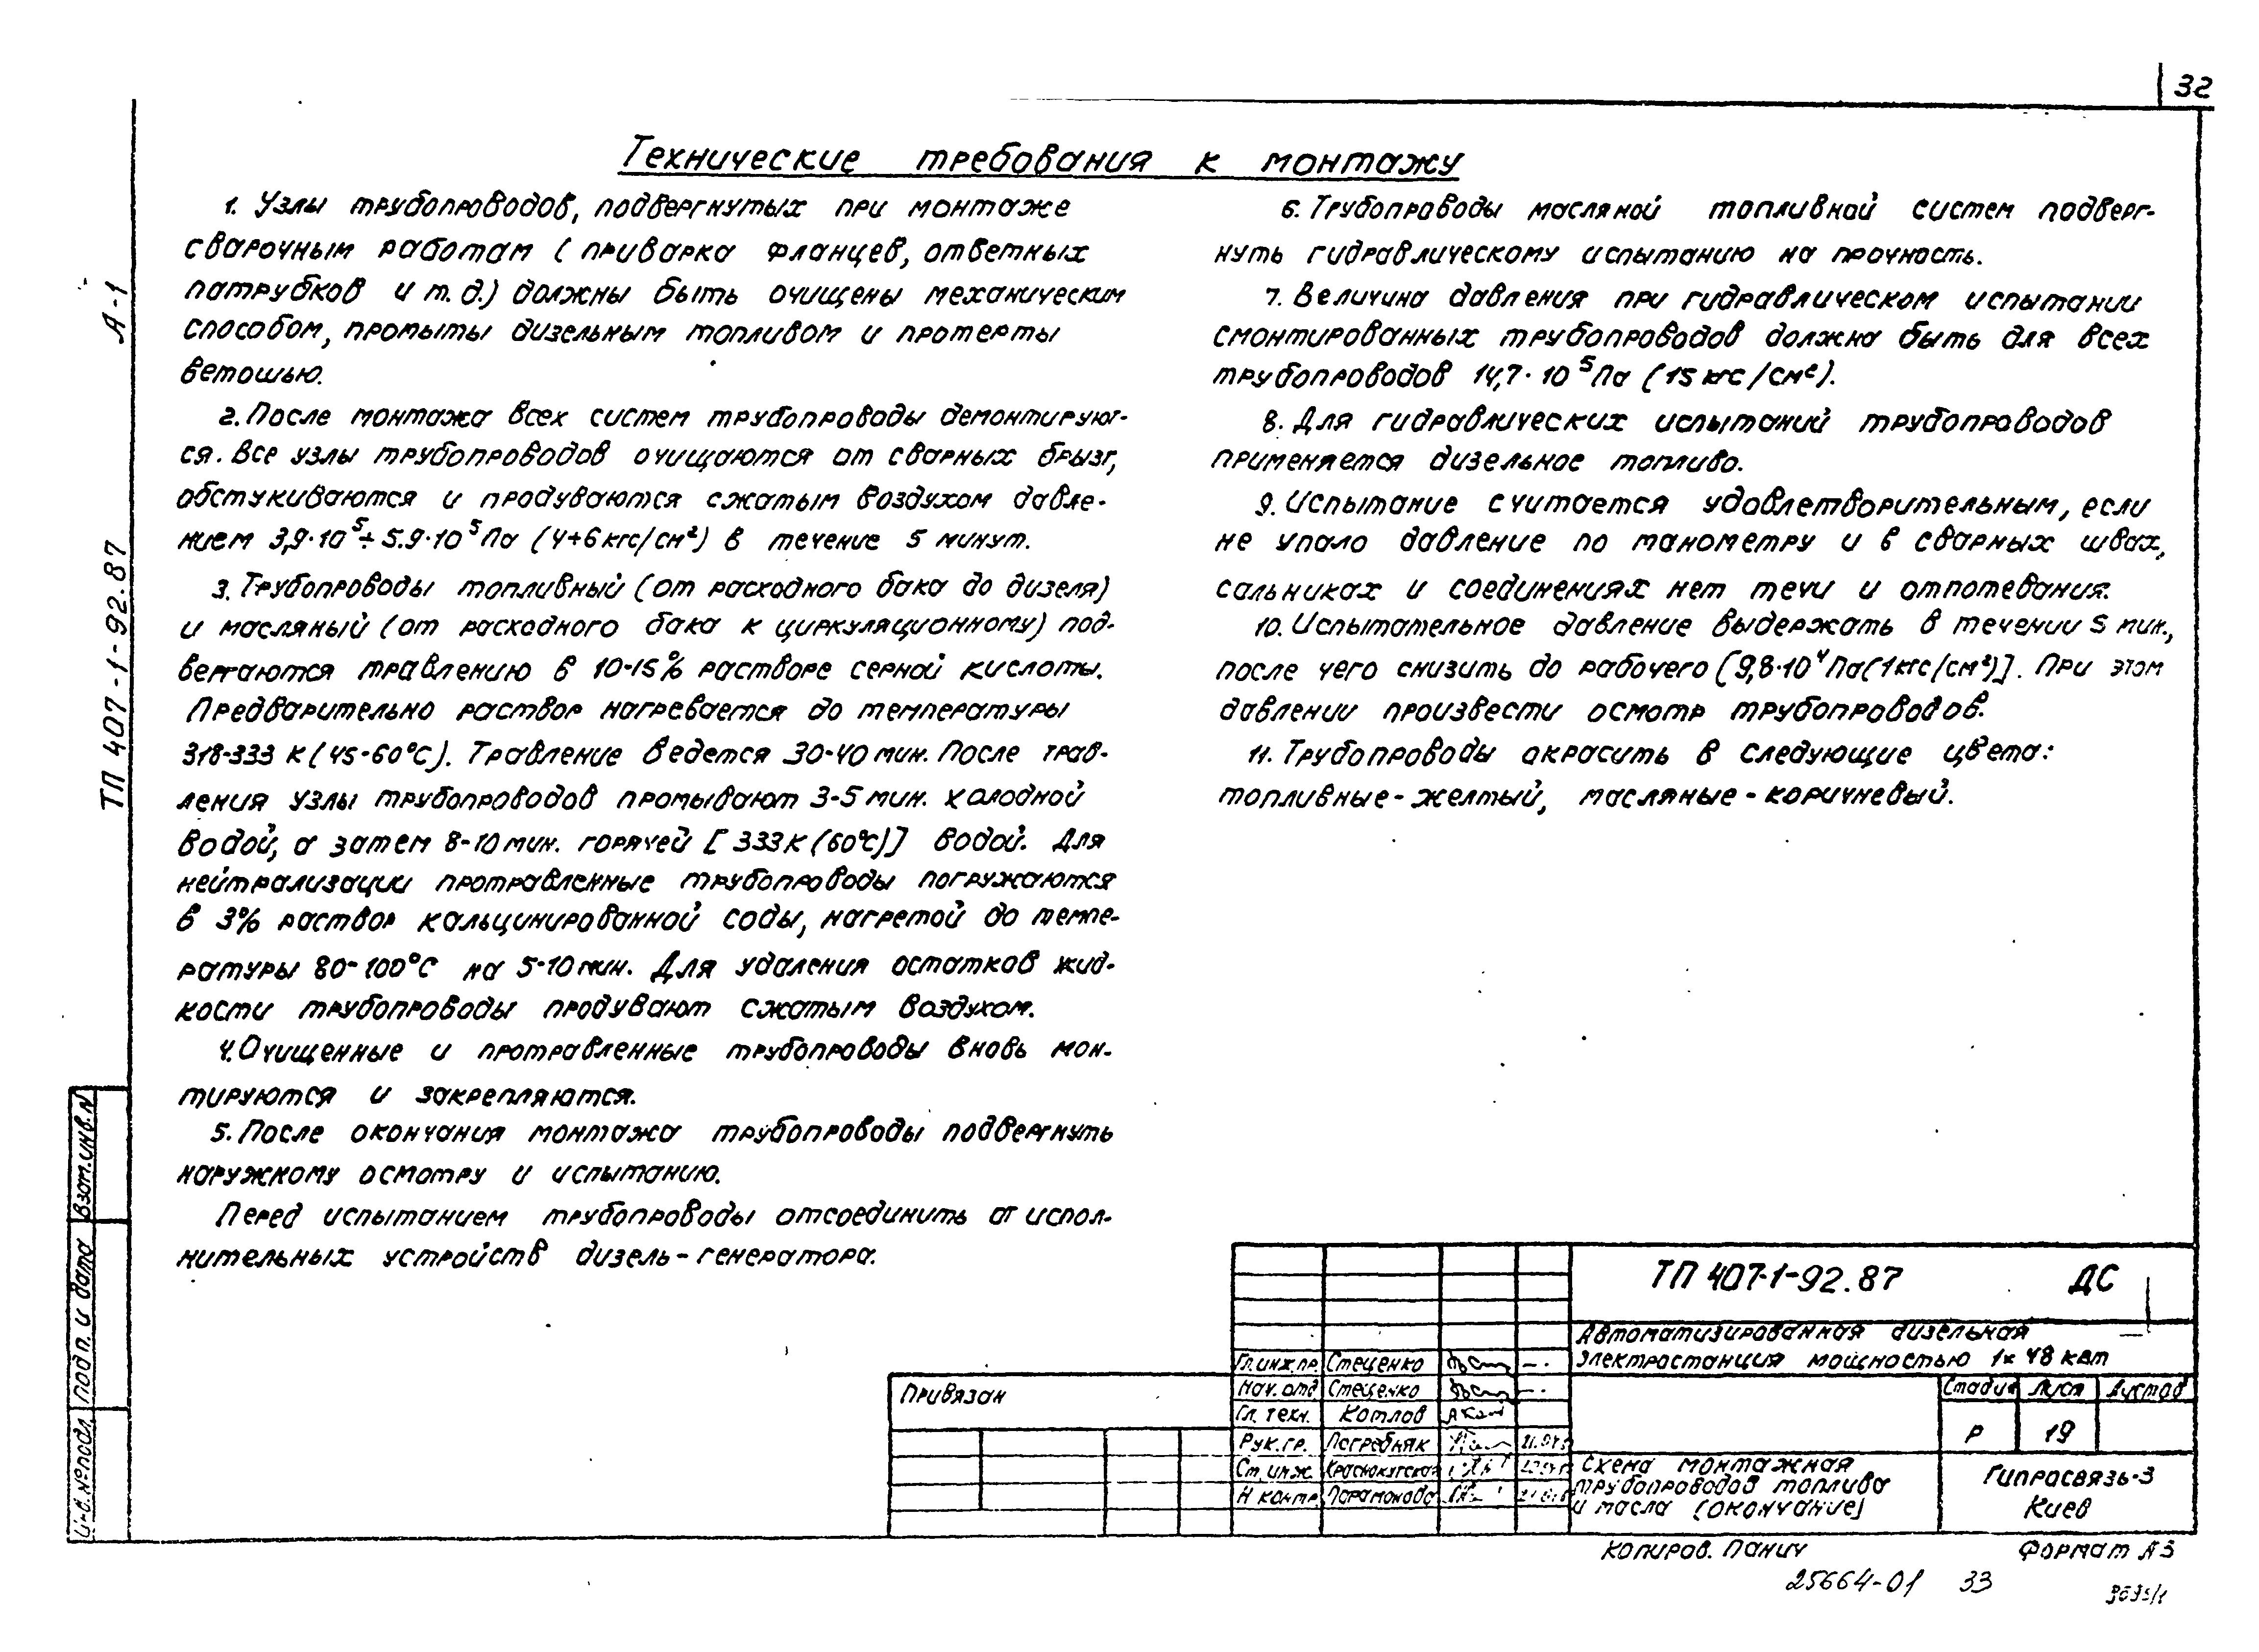 32
Технические требования к монтажу
1. Узлы трубопроводов, подвергнутых при монтаже
сварочным работам (приварка фланцев, ответных
патрубков и т.д.) должны быть очищены механическим
способом, промыты дизельным топливом и протерты
ветошью.
2. После монтажа всех систем трубопроводы демонтируют-
ся. Все узлы трубопроводов очищаются от сварных брызг,
обстукиваются и продуваются сжатым воздухом давле-
нием 3,9·10⁵÷5.9·10⁵Па (4÷6кгс/см²) в течение 5 минут.
3. Трубопроводы топливный (от расходного бака до дизеля)
и масляный (от расходного бака к циркуляционному) под-
вергаются травлению в 10-15% растворе серной кислоты.
Предварительно раствор нагревается до температуры
318-333 К (45-60°С). Травление ведется 30-40 мин. После трав-
ления узлы трубопроводов промывают 3-5 мин. холодной
водой, а затем 8-10 мин. горячей [333К (60°С)] водой. Для
нейтрализации протравленные трубопроводы погружаются
в 3% раствор кальцинированной соды, нагретой до темпе-
ратуры 80-100°С на 5-10 мин. Для удаления остатков жид-
кости трубопроводы продувают сжатым воздухом.
4. Очищенные и протравленные трубопроводы вновь мон-
тируются и закрепляются.
5. После окончания монтажа трубопроводы подвергнуть
наружному осмотру и испытанию.
Перед испытанием трубопроводы отсоединить от испол-
нительных устройств дизель-генератора.
6. Трубопроводы масляной топливной систем подверг-
нуть гидравлическому испытанию на прочность.
7. Величина давления при гидравлическом испытании
смонтированных трубопроводов должна быть для всех
трубопроводов 14,7·10⁵Па (15 кгс/см²).
8. Для гидравлических испытаний трубопроводов
применяется дизельное топливо.
9. Испытание считается удовлетворительным, если
не упало давление по манометру и в сварных швах,
сальниках и соединениях нет течи и отпотевания.
10. Испытательное давление выдержать в течении 5 мин.,
после чего снизить до рабочего [9,8·10⁴Па(1кгс/см²)]. При этом
давлении произвести осмотр трубопроводов.
11. Трубопроводы окрасить в следующие цвета:
топливные - желтый, масляные - коричневый.
А-1
ТП 407-1-92.87
Взам.инв.N
Подп. и дата
Инв.№подл
Привязан
Гл.инж.пр. Стеценко
Нач. отд Стеценко
Гл. техн. Котлов
Рук.гр. Погребняк
Ст.инж. Краснокутская
Н контр. Парамонова
ТП 407-1-92.87 ДС
Автоматизированная дизельная
электростанция мощностью 1х48 квт
Стадия Лист Листов
Р 19
Схема монтажная
трубопроводов топлива
и масла (окончание)
Гипросвязь-3
Киев
Копиров. Панич
Формат А3
25664-01 33